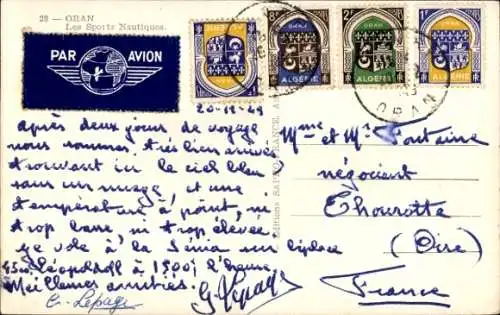 28 - ORAN
Les Sports Nautiques.
PAR AVION
ALGÉRIE
8F
ALGÉRIE
2F
ORAN
ALGÉRIE
1F
ALGÉRIE
ORAN
20-12-49
Après deux jours de voyage
nous sommes très bien arrivés
trouvant ici le ciel bleu
sans un nuage et une
température à point, ni
trop basse ni trop élevée.
Je vole à la Sénia sur biplace
à 150
Meilleures amitiés.
G. Lepage
G. Lepage
Mme et Mr Fontaine
négociant
Thourotte
(Oise)
France